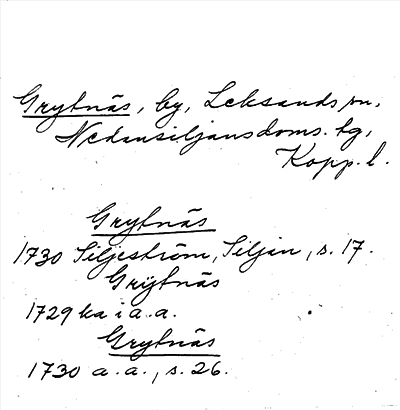 Grytnäs, by, Leksands sn,
Nedansiljans doms. tg,
Kopp. l.
Grytnäs
1730 Siljeström, Siljan, s. 17.
Grÿtnäs
1729 ka i a.a.
Grytnäs
1730 a.a., s. 26.